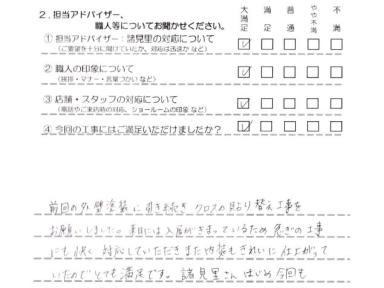 2. 担当アドバイザー、
職人等についてお聞かせください。
大満足 満足 普通 やや不満 不満
① 担当アドバイザー：諸見里の対応について
(ご要望を十分に聞けていたか、対応は迅速か など)
② 職人の印象について
(挨拶・マナー・言葉づかい など)
③ 店舗・スタッフの対応について
(電話やご来店時の対応、ショールームの印象 など)
④ 今回の工事にはご満足いただけましたか？
前回の外壁塗装に引き続き クロスの貼り替え工事を
お願いしました。末日には入居がきまっているため 急ぎの工事
にも快く 対応していただきまた内装もきれいに仕上がって
いたのでとても満足です。諸見里さん はじめ 今回も